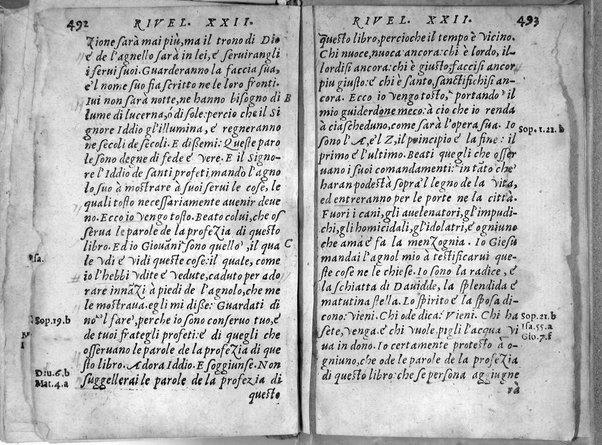 492 RIVEL. XXII.
zione sarà mai più, ma il trono di Dio
e de l'agnello sarà in lei, e serviranglì
i servi suoi. Guarderanno la faccia sua,
e'l nome suo fia scritto ne le loro fronti.
Ivi non sarà notte, ne hanno bisogno di B
lume di lucerna, ò di sole: percio che il si
gnore Iddio gl'illumina, e regneranno
ne secoli de secoli. E dißemi: Queste paro
le sono degne di fede e vere. E il Signo-
re l'Iddio de santi profeti mandò l'agno
lo suo à mostrare à suoi servi le cose, le
quali tosto necessariamente avenir deve
no. Ecco io vengo tosto. Beato colui, che os
serva le parole de la profezia di questo
libro. Ed io Giovãni sono quello, il qua C
le vdì e vidi queste cose: il quale, como
io l'hebbi vdite e vedute, caduto per ado
fsa.
rare innãzi à piedi de l'agnolo, che me
le mostrava. egli mi diße: Guardati di
Sop. 19. b no'l fare, perche io sono conservo tuo, e
de tuoi frategli profeti: e di quegli che
osservano le parole de la profezia di que
sto libro. Adora Iddio. E soggiunse. Non
Diu. 6. b
Mat. 4. a suggellerai le parole de la profezia di
questo
RIVEL. XXII. 493
questo libro, percioche il tempo è vicino.
Chi nuoce, nuoca ancora: chi è lordo, il-
lordisi ancora: chi è giusto, faccisi ancor
piu giusto: e chi è santo, santifichisi an-
cora. Ecco io vengo tosto, portando il
mio guiderdone meco: à cio che io renda
à ciascheduno, come sarà l'opera sua. Io Sop. 1. 21. b
sono l'A, e'l Z, il principio e la fine: il
primo e l'ultimo. Beati quegli che osser
vano i suoi comandamenti: in tãto che
haran podestà sopra'l legno de la vita,
ed entreranno per le porte ne la città.
Fuori i cani, gli avelenatori, gl'impudi-
chi, gli homicidali, gl'idolatri, e ogniuno
che ama e fa la menzognia. Io Giesù
mandai l'agnol mio à testificarvi que-
ste cose ne le chiese. Io sono la radice, e
la schiatta di Davidde, la splendida e
matutina stella. Lo spirito e la sposa di-
cono: vieni. Chi ode dica: Vieni. Chi ha Sop. 21. b
sete, venga. e chi vuole, pigli l'acqua vi Isa. 55. a
va in dono. Io certamente protesto à o- Gio. 7. f
gniuno, che ode le parole de la profezia
di questo libro: che se persona aggiugne
rà